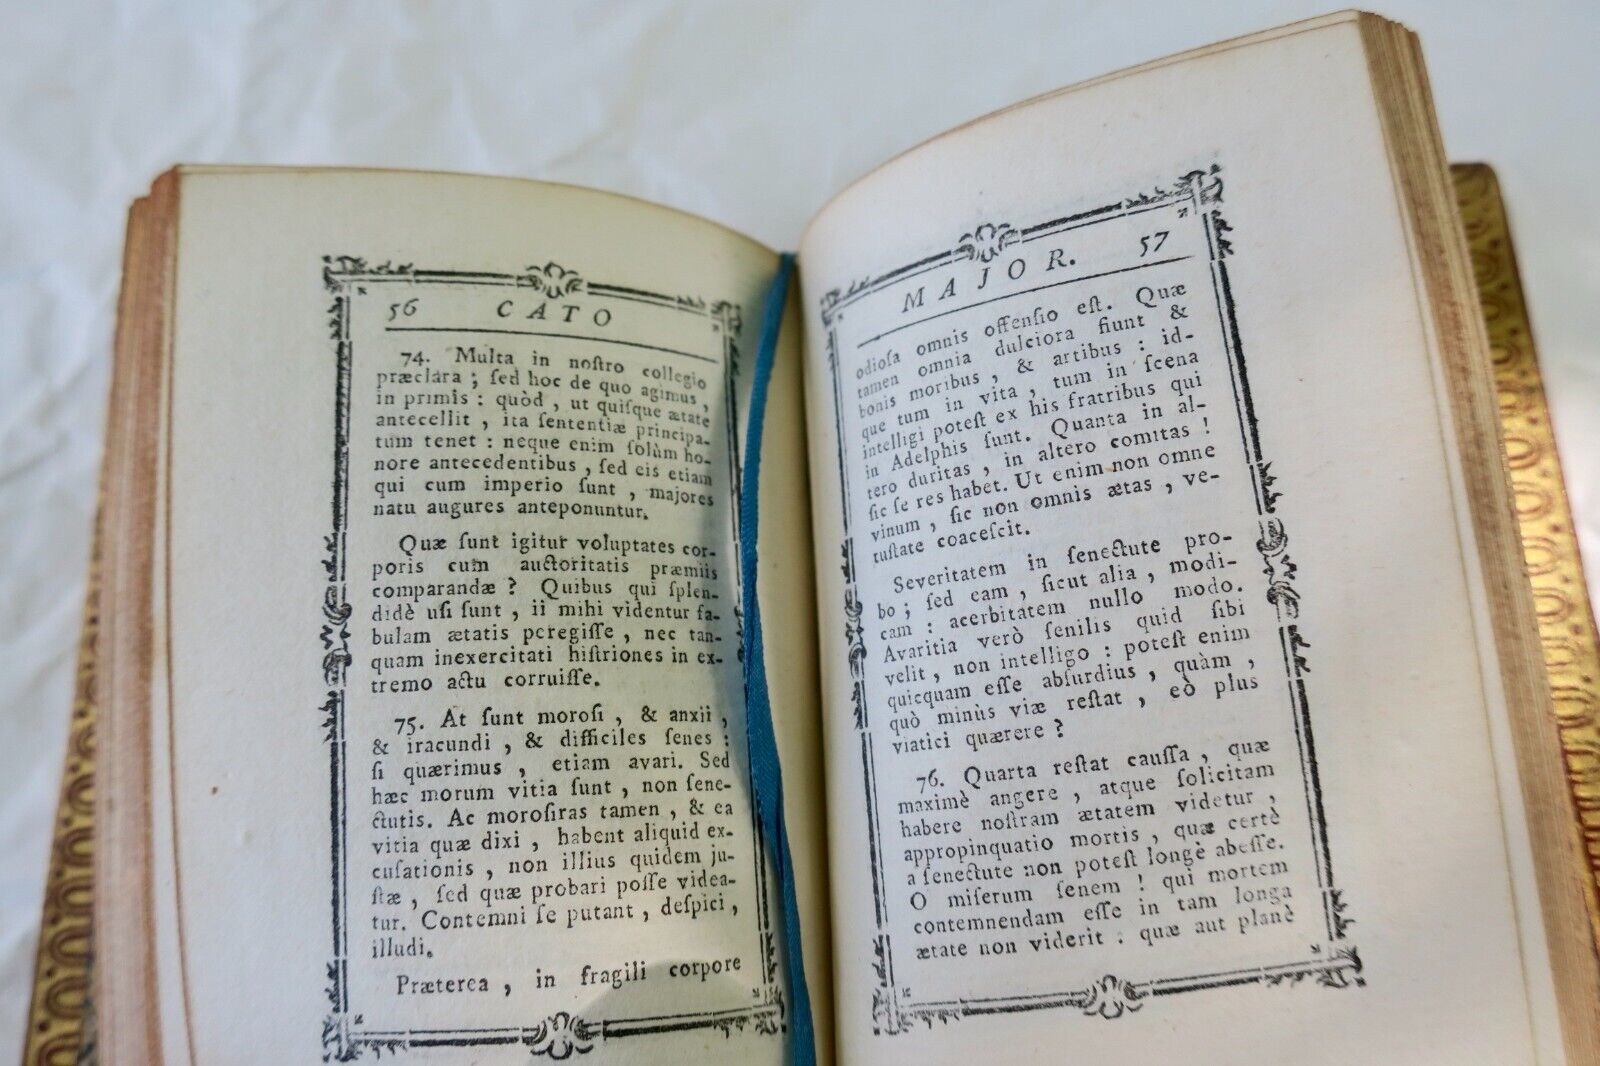 56 CATO
74. Multa in noſtro collegio
præclara ; ſed hoc de quo agimus,
in primis : quòd , ut quiſque ætate
antecellit , ita ſententiæ principa-
tum tenet : neque enim ſolùm ho-
nore antecedentibus , ſed eis etiam
qui cum imperio ſunt , majores
natu augures anteponuntur.
Quæ ſunt igitur voluptates cor-
poris cum auctoritatis præmiis
comparandæ ? Quibus qui ſplen-
didè uſi ſunt , ii mihi videntur fa-
bulam ætatis peregiſſe , nec tan-
quam inexercitati hiſtriones in ex-
tremo actu corruiſſe.
75. At ſunt moroſi , & anxii ,
& iracundi , & difficiles ſenes :
ſi quærimus , etiam avari. Sed
hæc morum vitia ſunt , non ſene-
ctutis. Ac moroſiras tamen , & ea
vitia quæ dixi , habent aliquid ex-
cuſationis , non illius quidem ju-
ſtæ , ſed quæ probari poſſe videa-
tur. Contemni ſe putant , deſpici ,
illudi.
Præterea , in fragili corpore
MAJOR. 57
odioſa omnis offenſio eſt. Quæ
tamen omnia dulciora fiunt &
bonis moribus , & artibus : id-
que tum in vita , tum in ſcena
intelligi poteſt ex his fratribus qui
in Adelphis ſunt. Quanta in al-
tero duritas , in altero comitas !
ſic ſe res habet. Ut enim non omne
vinum , ſic non omnis ætas , ve-
tuſtate coaceſcit.
Severitatem in ſenectute pro-
bo ; ſed eam , ſicut alia , modi-
cam : acerbitatem nullo modo.
Avaritia verò ſenilis quid ſibi
velit , non intelligo : poteſt enim
quicquam eſſe abſurdius , quàm ,
quò minùs viæ reſtat , eò plus
viatici quærere ?
76. Quarta reſtat cauſſa , quæ
maximè angere , atque ſolicitam
habere noſtram ætatem videtur ,
appropinquatio mortis , quæ certè
a ſenectute non poteſt longè abeſſe.
O miſerum ſenem ! qui mortem
contemnendam eſſe in tam longa
ætate non viderit : quæ aut planè